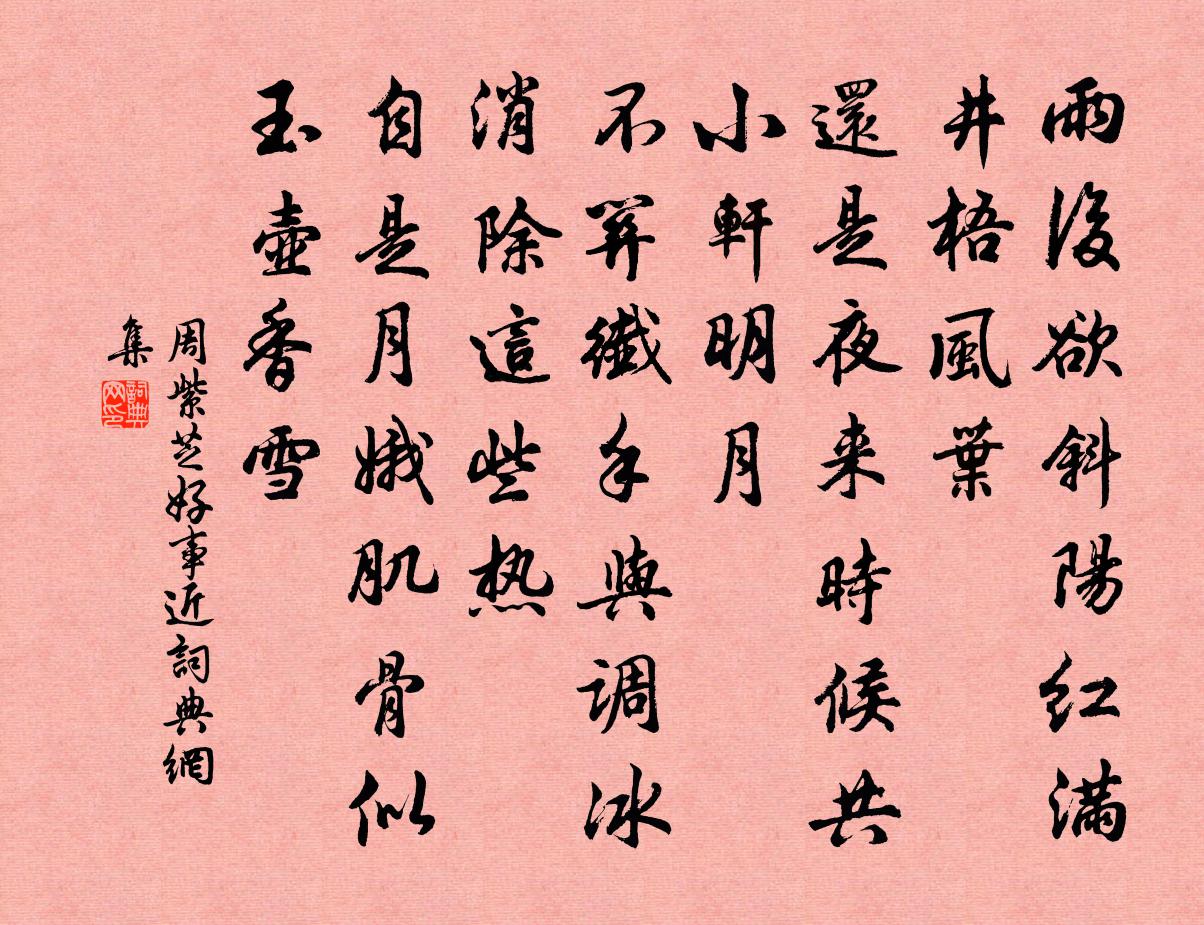 雨後欲斜陽紅滿
井梧風葉
還是夜来時候共
小軒明月
不算纖手與调冰
消除這些热
自是月娥肌骨似
玉壺香雪
周紫芝好事近詞典網
集
詞典
网印